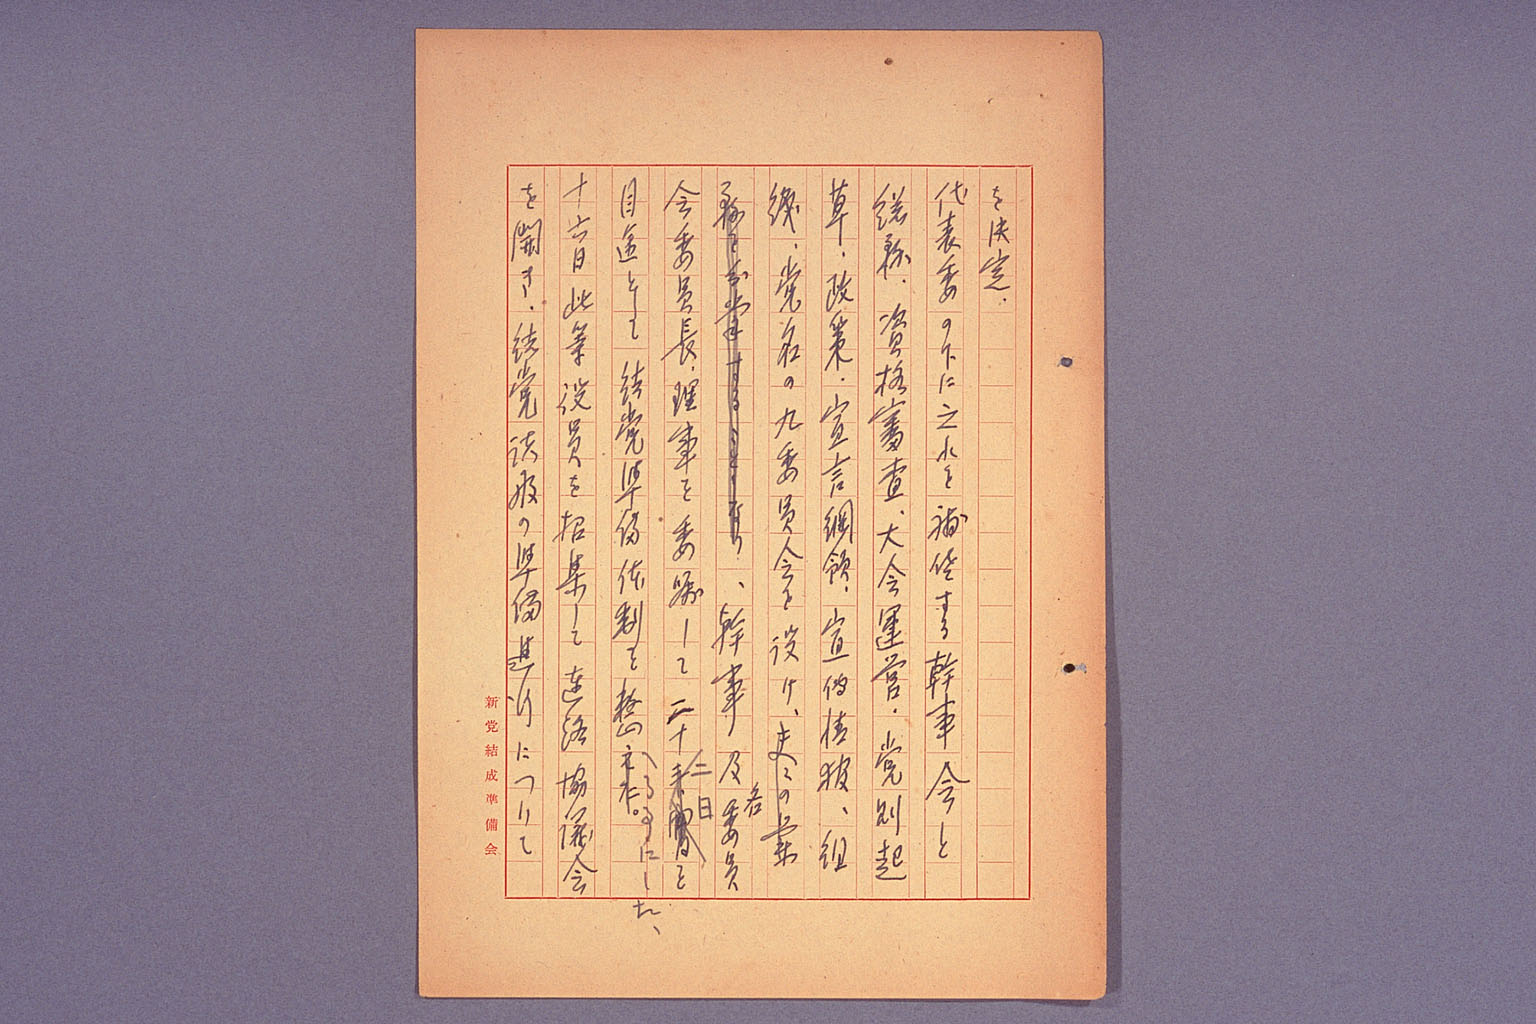 を決定、
代表委の下に之れを補佐する幹事会と
総務、資格審査、大会運営、党則起
草、政策、宣言綱領、宣伝情報、組
織、党名の九委員会を設け、夫々の業
務を分掌することゝなり、幹事及各委員
会委員長、理事を委嘱して二十二日を
目途として結党準備体制を整へる事にした、
十六日此等役員を招集して連絡協議会
を開き、結党諸般の準備進行について
新党結成準備会